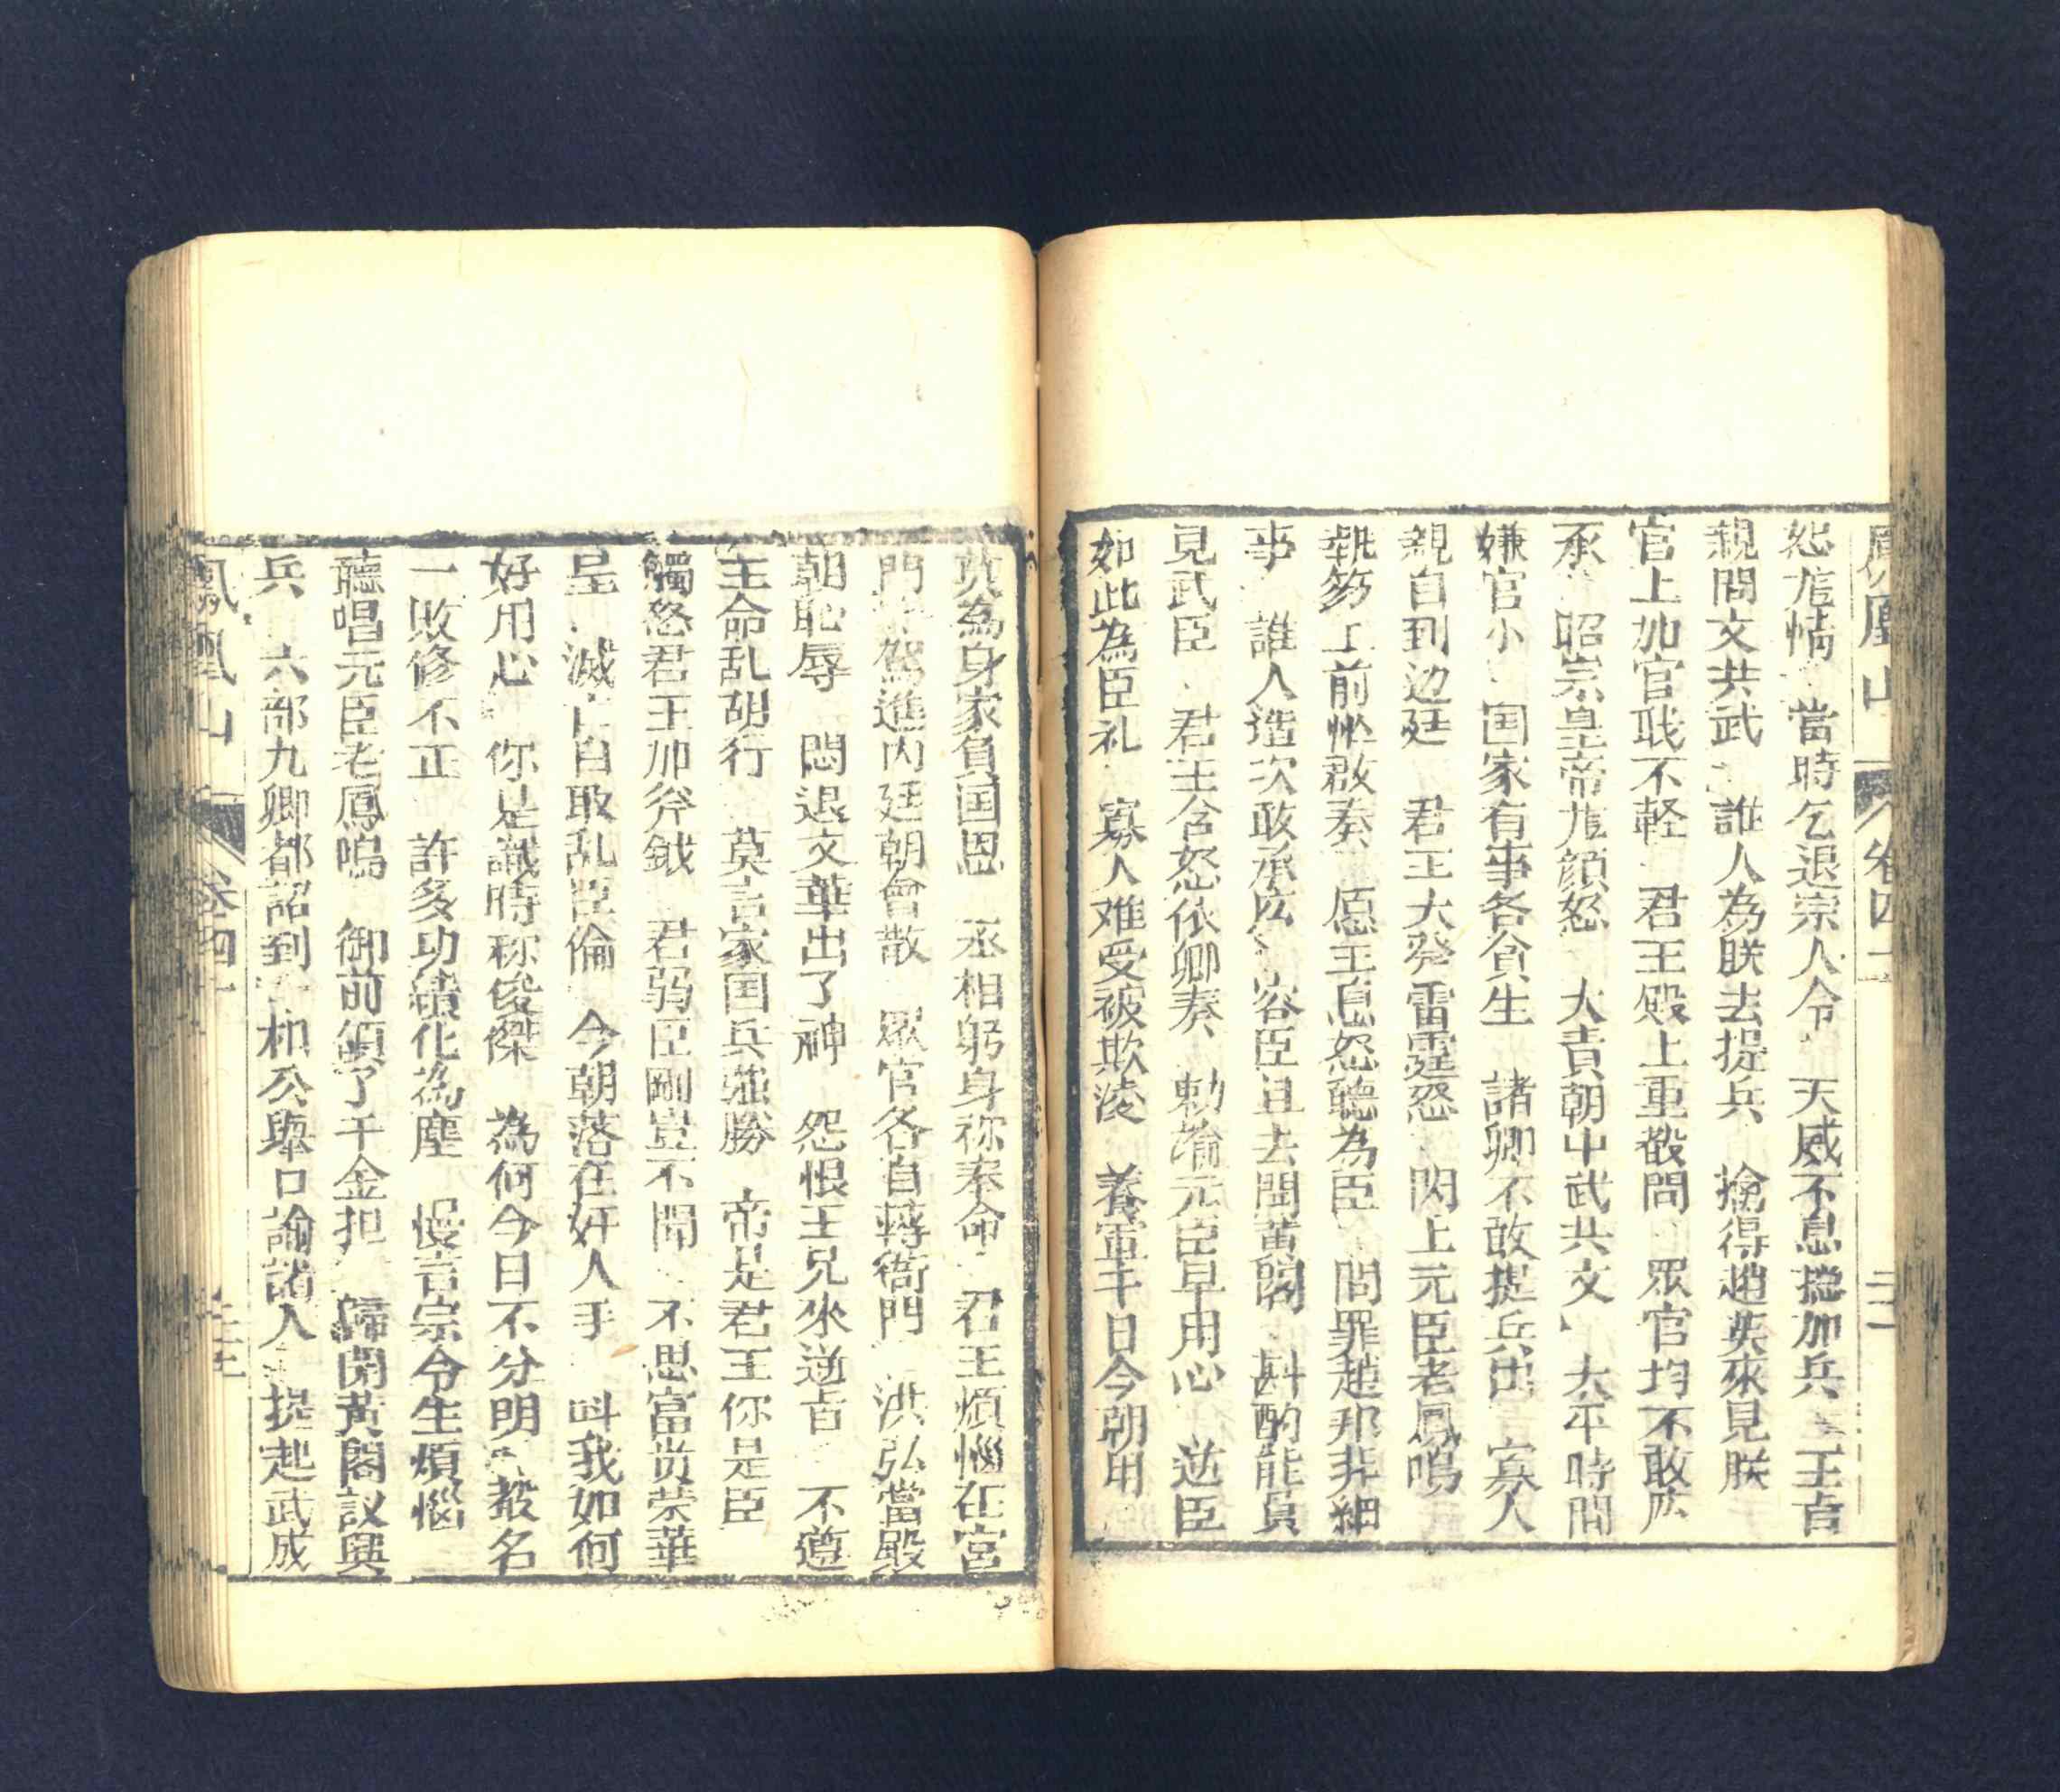 鳳凰山 卷四十 三十二
怒尨情 當時乞退宗人令 天威不息搃加兵 王旨
親問文共武 誰人為朕去提兵 擒得趙英來見朕
官上加官戝不軽 君王殿上重敬問 眾官均不敢应
承 昭宗皇帝尨顔怒 大責朝中武共文 太平時間
嫌官小 国家有事各貪生 諸卿不敢提兵出 寡人
親自到边廷 君王大癸雷霆怒 閃上元臣老鳳鳴
執笏上前忙啟奏 愿王息怒聽為臣 問罪趙邦非細
事 誰人造次敢承应 容臣且去開黃閣 斟酌能員
見武臣 君王含怒依卿奏 勅諭元臣早用心 逆臣
如此為臣礼 寡人难受被欺淩 養軍千日今朝用
莫為身家負国恩 丞相躬身称奉命 君王煩惱在宮
門 駕進内廷朝會散 眾官各自轉衙門 洪弘當殿
朝恥辱 悶退文華出了神 怨恨王兄來逆旨 不遵
主命乱胡行 莫言家国兵強勝 帝是君王你是臣
觸怒君王加斧鉞 君弱臣剛豈不聞 不思富貴荣華
呈 滅亡自取乱臣倫 今朝落在奸人手 叫我如何
好用心 你是識時称俊傑 為何今日不分明 教名
一敗修不正 許多功績化為塵 慢言宗令生煩惱
聽唱元臣老鳳鳴 御前領了千金担 歸閑黃閣議興
兵 六部九卿都詔到 相公舉口諭諸人 提起武成
鳳凰山 卷四十